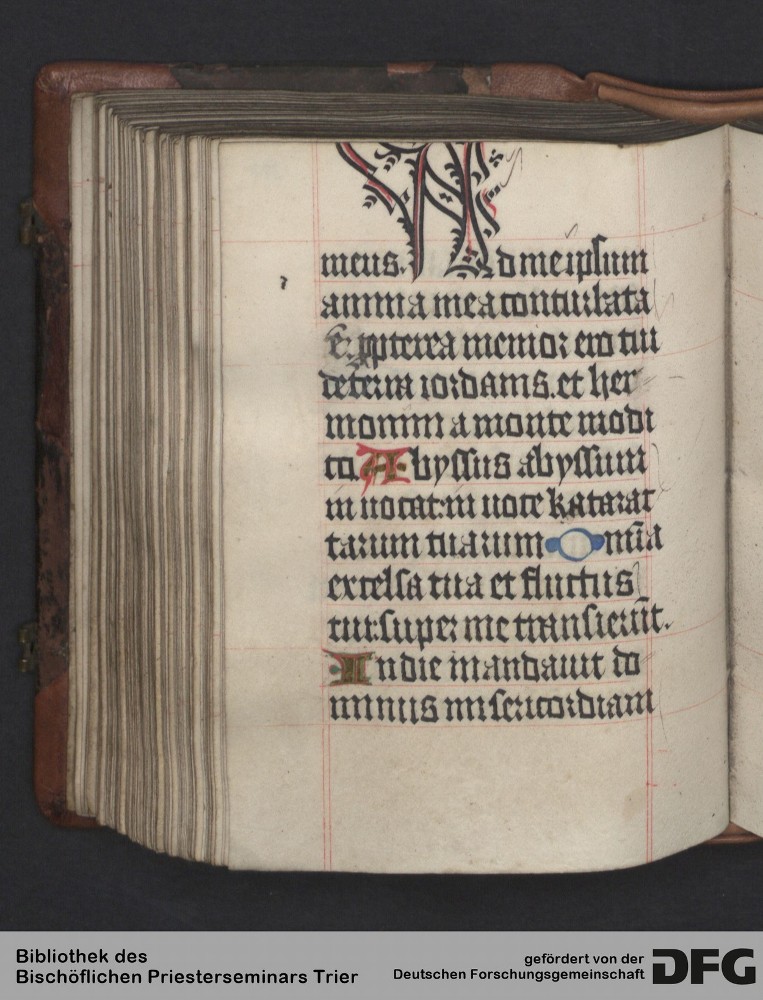 meus. Ad me ipsum
anima mea conturbata
e: ppterea memor ero tui
de terra iordanis. et her
monim a monte modi
co Abyssus abyssum
in uocat: in uoce katarac
tarum tuarum Om̄ia
excelsa tua et fluctus
tui: super me transierūt.
In die mandauit do
minus misericordiam
Bibliothek des
Bischöflichen Priesterseminars Trier
gefördert von der
Deutschen Forschungsgemeinschaft
DFG